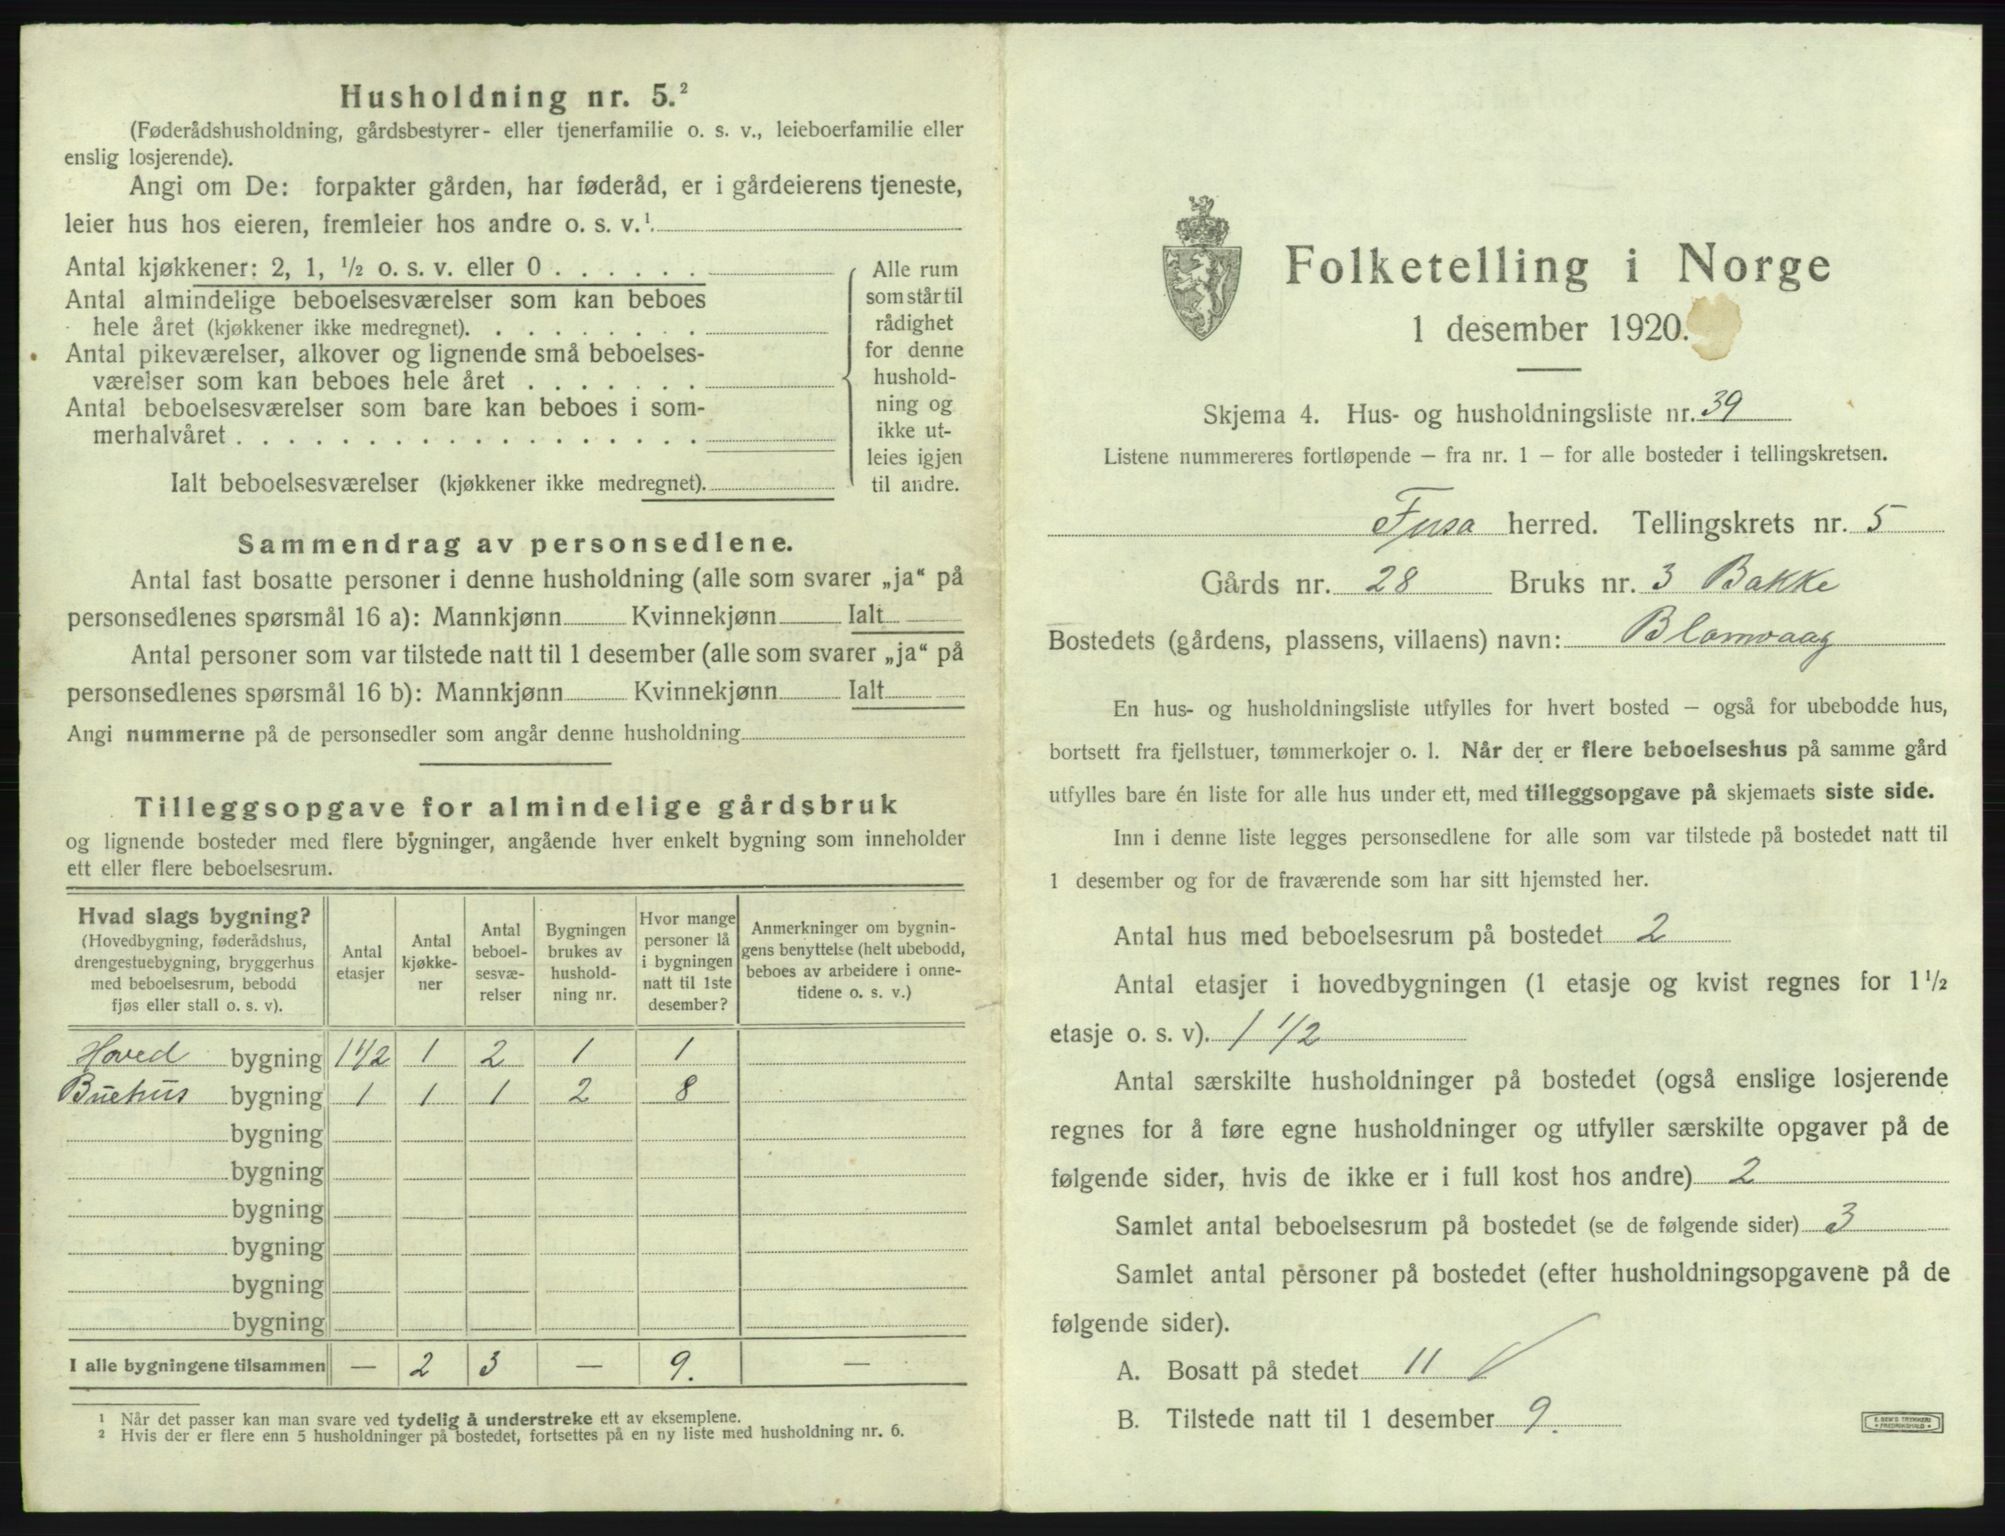 Husholdning nr. 5.²
(Føderådshusholdning, gårdsbestyrer- eller tjenerfamilie o. s. v., leieboerfamilie eller
enslig losjerende).
Angi om De: forpakter gården, har føderåd, er i gårdeierens tjeneste,
leier hus hos eieren, fremleier hos andre o. s. v.¹
Antal kjøkkener: 2, 1, ½ o. s. v. eller 0 . . . . . .
Antal almindelige beboelsesværelser som kan beboes
hele året (kjøkkener ikke medregnet). . . . . . . . .
Antal pikeværelser, alkover og lignende små beboelses-
værelser som kan beboes hele året . . . . . . .
Antal beboelsesværelser som bare kan beboes i som-
merhalvåret . . . . . . . . . . . . . . . . . .
Ialt beboelsesværelser (kjøkkener ikke medregnet).
Alle rum
som står til
rådighet
for denne
hushold-
ning og
ikke ut-
leies igjen
til andre.
Sammendrag av personsedlene.
Antal fast bosatte personer i denne husholdning (alle som svarer „ja“ på
personsedlenes spørsmål 16 a): Mannkjønn Kvinnekjønn Ialt
Antal personer som var tilstede natt til 1 desember (alle som svarer „ja“ på
personsedlenes spørsmål 16 b): Mannkjønn Kvinnekjønn Ialt
Angi nummerne på de personsedler som angår denne husholdning
Tilleggsopgave for almindelige gårdsbruk
og lignende bosteder med flere bygninger, angående hver enkelt bygning som inneholder
ett eller flere beboelsesrum.
Hvad slags bygning?
(Hovedbygning, føderådshus,
drengestuebygning, bryggerhus
med beboelsesrum, bebodd
fjøs eller stall o. s. v).
Antal
etasjer
Antal
kjøkke-
ner
Antal
beboel-
sesvæ-
relser
Bygningen
brukes av
hushold-
ning nr.
Hvor mange
personer lå
i bygningen
natt til 1ste
desember?
Anmerkninger om bygnin-
gens benyttelse (helt ubebodd,
beboes av arbeidere i onne-
tidene o. s. v.)
Hoved bygning 1 1/2 1 2 1 1
Buehus bygning 1 1 1 2 8
bygning
bygning
bygning
bygning
bygning
bygning
I alle bygningene tilsammen — 2 3 — 9. —
¹ Når det passer kan man svare ved tydelig å understreke ett av eksemplene.
² Hvis der er flere enn 5 husholdninger på bostedet, fortsettes på en ny liste med husholdning nr. 6.
Folketelling i Norge
1 desember 1920.
Skjema 4. Hus- og husholdningsliste nr. 39
Listene nummereres fortløpende – fra nr. 1 – for alle bosteder i tellingskretsen.
Fusa herred. Tellingskrets nr. 5
Gårds nr. 28 Bruks nr. 3 Bakke
Bostedets (gårdens, plassens, villaens) navn: Blomvaag
En hus- og husholdningsliste utfylles for hvert bosted – også for ubebodde hus,
bortsett fra fjellstuer, tømmerkojer o. l. Når der er flere beboelseshus på samme gård
utfylles bare én liste for alle hus under ett, med tilleggsopgave på skjemaets siste side.
Inn i denne liste legges personsedlene for alle som var tilstede på bostedet natt til
1 desember og for de fraværende som har sitt hjemsted her.
Antal hus med beboelsesrum på bostedet 2
Antal etasjer i hovedbygningen (1 etasje og kvist regnes for 1½
etasje o. s. v). 1 1/2
Antal særskilte husholdninger på bostedet (også enslige losjerende
regnes for å føre egne husholdninger og utfyller særskilte opgaver på de
følgende sider, hvis de ikke er i full kost hos andre) 2
Samlet antal beboelsesrum på bostedet (se de følgende sider) 3
Samlet antal personer på bostedet (efter husholdningsopgavene på de
følgende sider).
A. Bosatt på stedet 11
B. Tilstede natt til 1 desember 9.